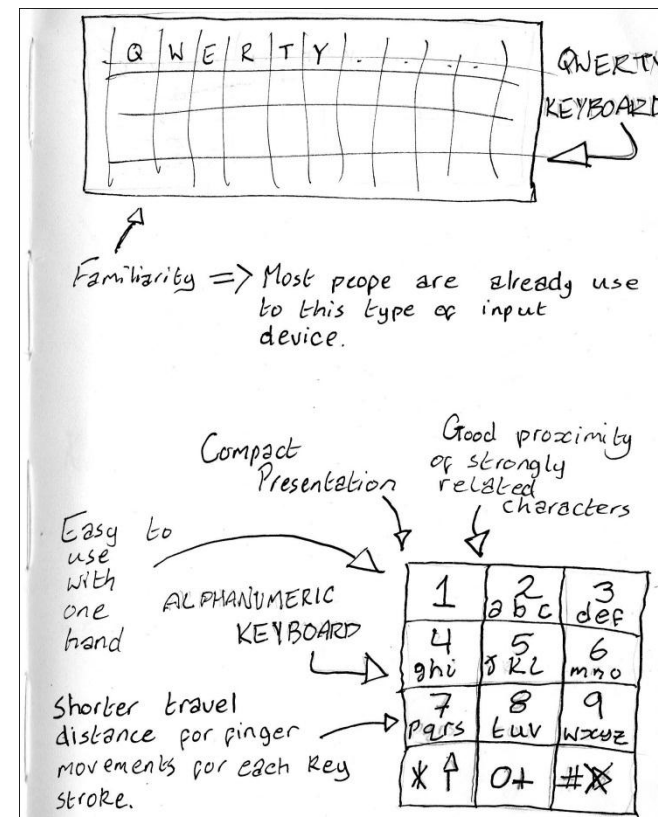 Q W E R T Y . . . .
QWERTY
KEYBOARD
Familiarity => Most peope are already use
to this type of input
device.
Compact
Presentation
Good proximity
of strongly
related
characters
Easy to
use
with
one
hand
ALPHANUMERIC
KEYBOARD
Shorter travel
distance for finger
movements for each key
stroke.
1 2 3
abc def
4 5 6
ghi jkl mno
7 8 9
pqrs tuv wxyz
* ↑ 0+ #